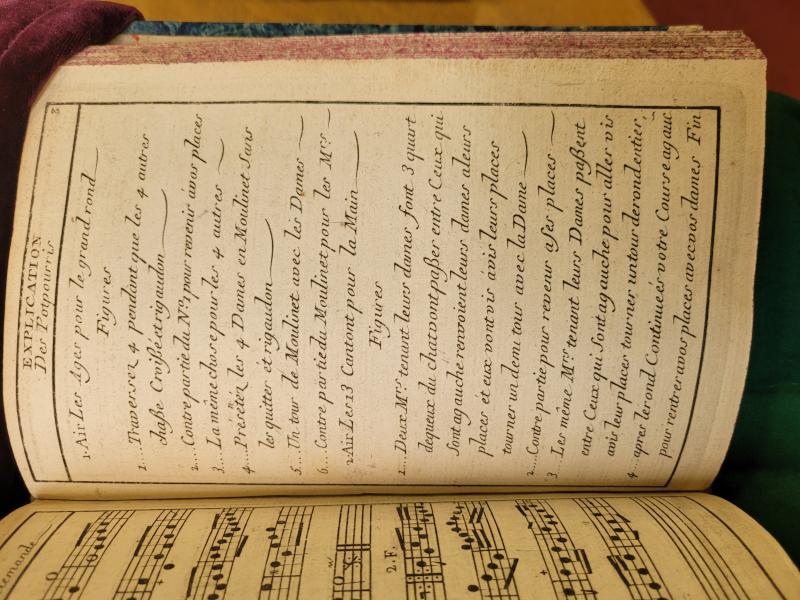 2
EXPLICATION
Des Potpourris
1. Air Les Ages pour le grand rond
Figures
1.... Traversez 4 pendant que les 4 autres
chaße Croißé et rigaudon
2.... Contre partie du N.º 1 pour revenir à vos places
3.... La même chose pour les 4 autres
4.... les 4 Dames en Moulinet Sans
les quitter et rigaudon
5.... Un tour de Moulinet avec les Dames
6.... Contre partie du Moulinet pour les M.rs
2. Air Les 13 Cantont pour la Main
Figures
1.... Deux M.rs tenant leurs dames font 3 quart
de queux du chat vont paßer entre Ceux qui
Sont a gauche renvoient leurs dames a leurs
places et eux vont vis à vis leurs places
tourner un demi tour avec la Dame
2.... Contre partie pour revenir a ses places
3.... Les même M.rs tenant leurs Dames paßent
entre Ceux qui Sont a gauche pour aller vis
avis leur places tourner un tour de rond entier,
4.... apres le rond Continueés votre Course a gauc
pour rentrer a vos places avec vos dames Fin
lemande
2.F.